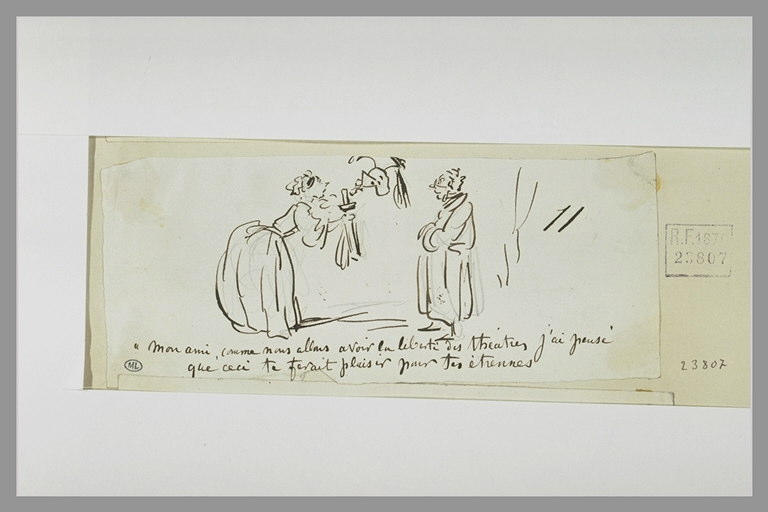 " Mon ami, comme nous allons avoir la liberté des théâtres j'ai pensé
que ceci te ferait plaisir pour tes étrennes
ML
R.F. 1870
23807
23807